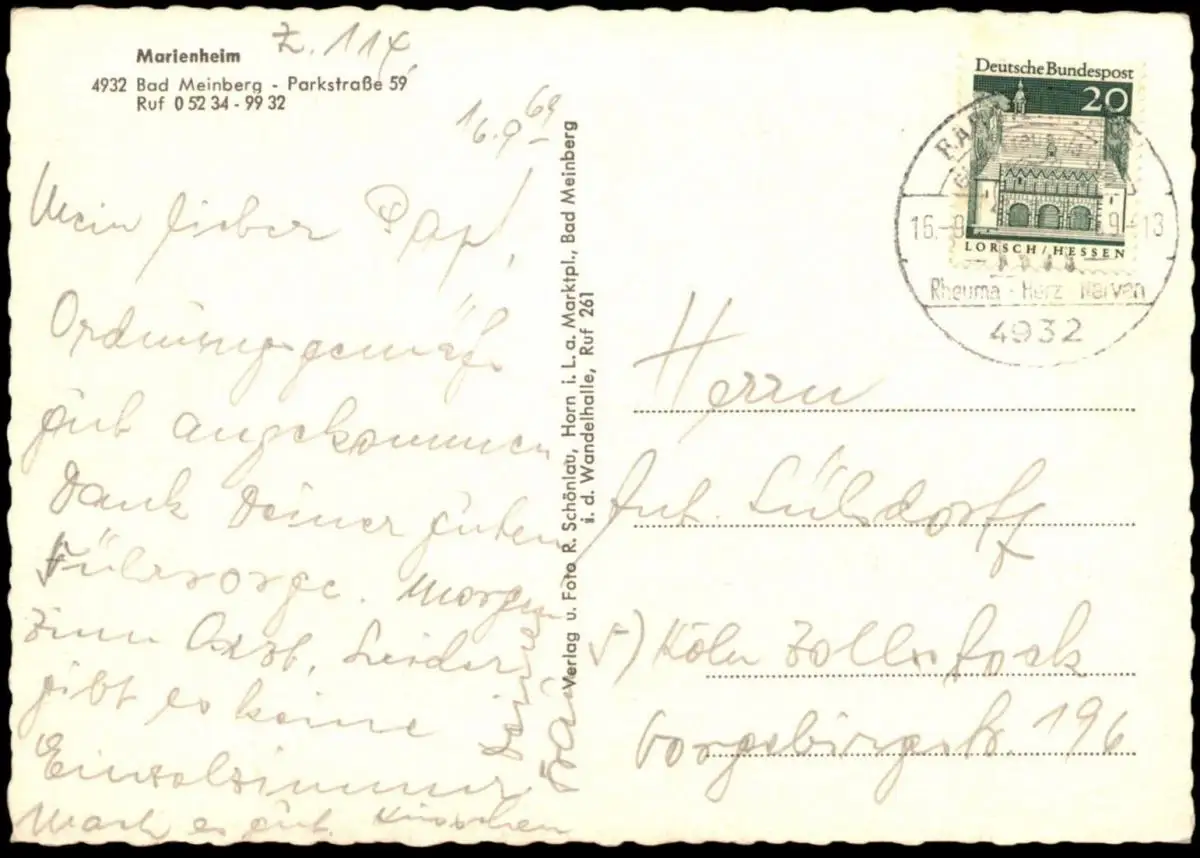 Marienheim
Z. 114
4932 Bad Meinberg - Parkstraße 59
Ruf 0 52 34 - 99 32
16.9 69
Mein lieber Pap!
Ordnungsgemäß
gut angekommen
Dank Deiner guten
Führsorge. Morgen
zum Arzt. Leider
gibt es keine
Einzelzimmer
Mach es gut. Küsschen
Verlag u. Foto R. Schönlau, Horn i. L. a. Marktpl., Bad Meinberg
i. d. Wandelhalle, Ruf 261
Deutsche Bundespost
20
LORSCH/HESSEN
16.-9
9-13
Rheuma - Herz Nerven
4932
Herrn
Ant. Lülsdorff
5) Köln Zollstock
Vorgebirgstr. 196